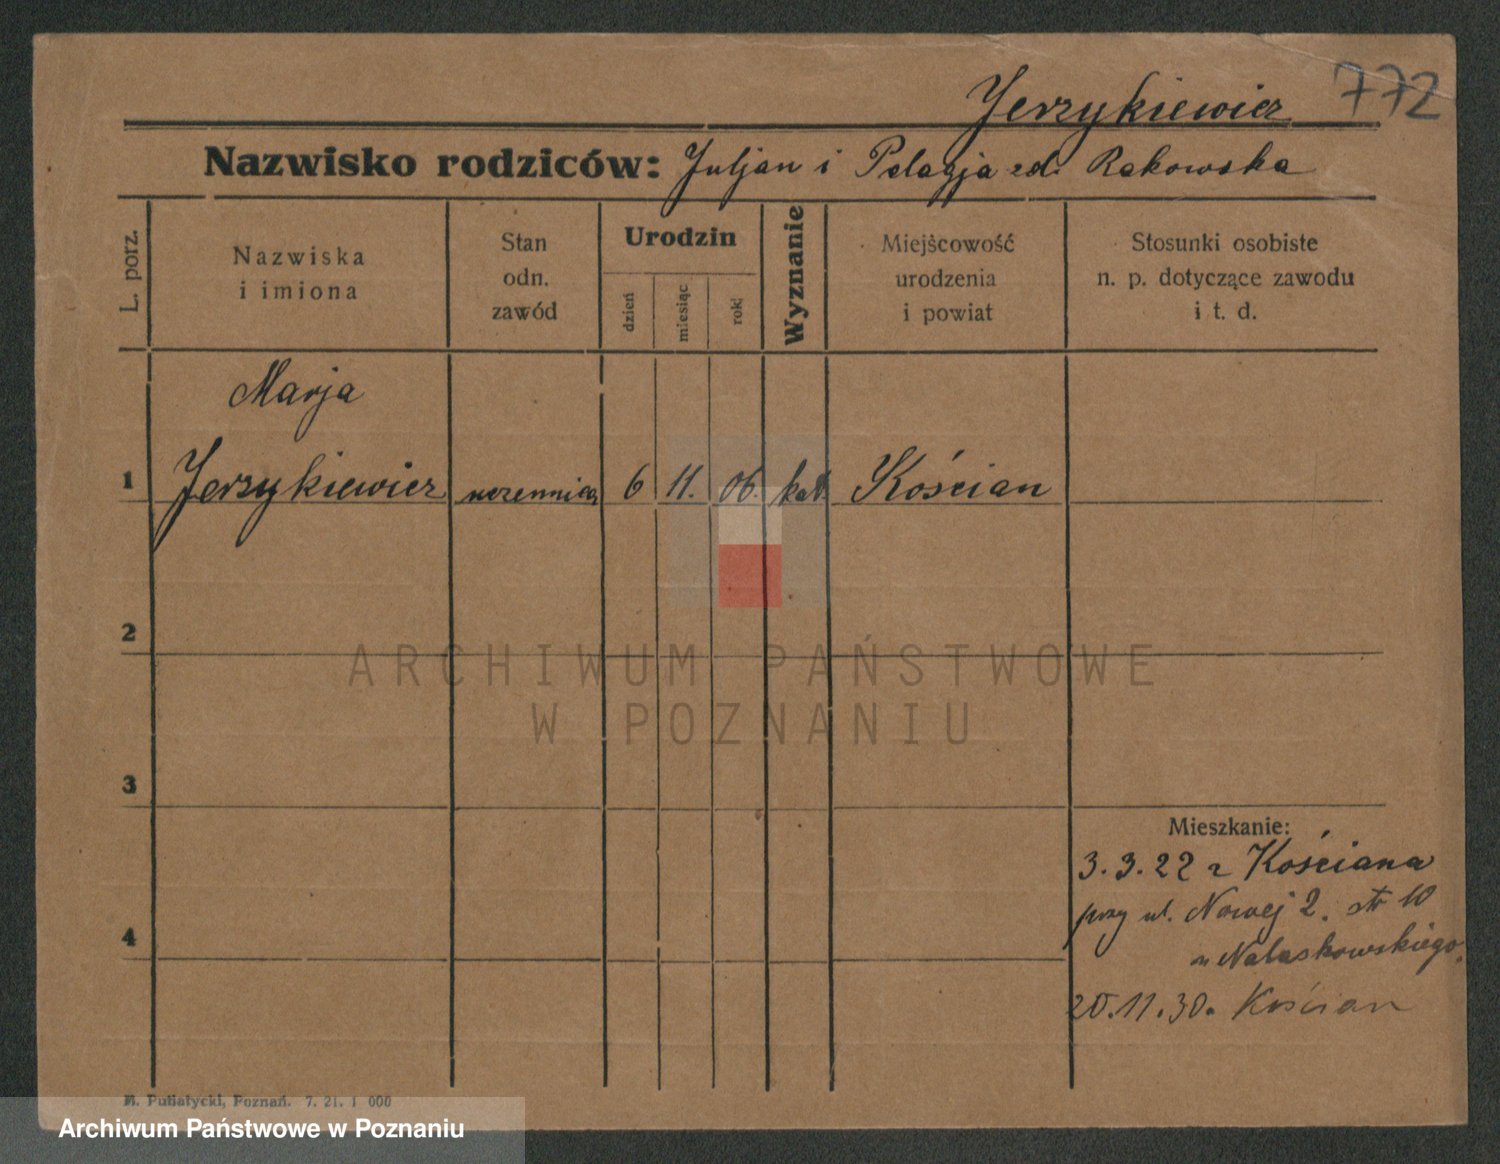 Jerzykiewicz 772
Nazwisko rodziców: Juljan i Pelagja zd. Rakowska
L. porz.
Nazwiska
i imiona
Stan
odn.
zawód
Urodzin
dzień
miesiąc
rok
Wyznanie
Miejscowość
urodzenia
i powiat
Stosunki osobiste
n. p. dotyczące zawodu
i t. d.
Marja
1 Jerzykiewicz uczennica 6 11. 06. kat. Kościan
2
3
4
Mieszkanie:
3.3.22 z Kościana
przy ul. Nowej 2. 10
u Nalaskowskiego.
20.11.30. Kościan
ARCHIWUM PAŃSTWOWE
W POZNANIU
M. Putiatycki, Poznań. 7. 21. 1 000
Archiwum Państwowe w Poznaniu